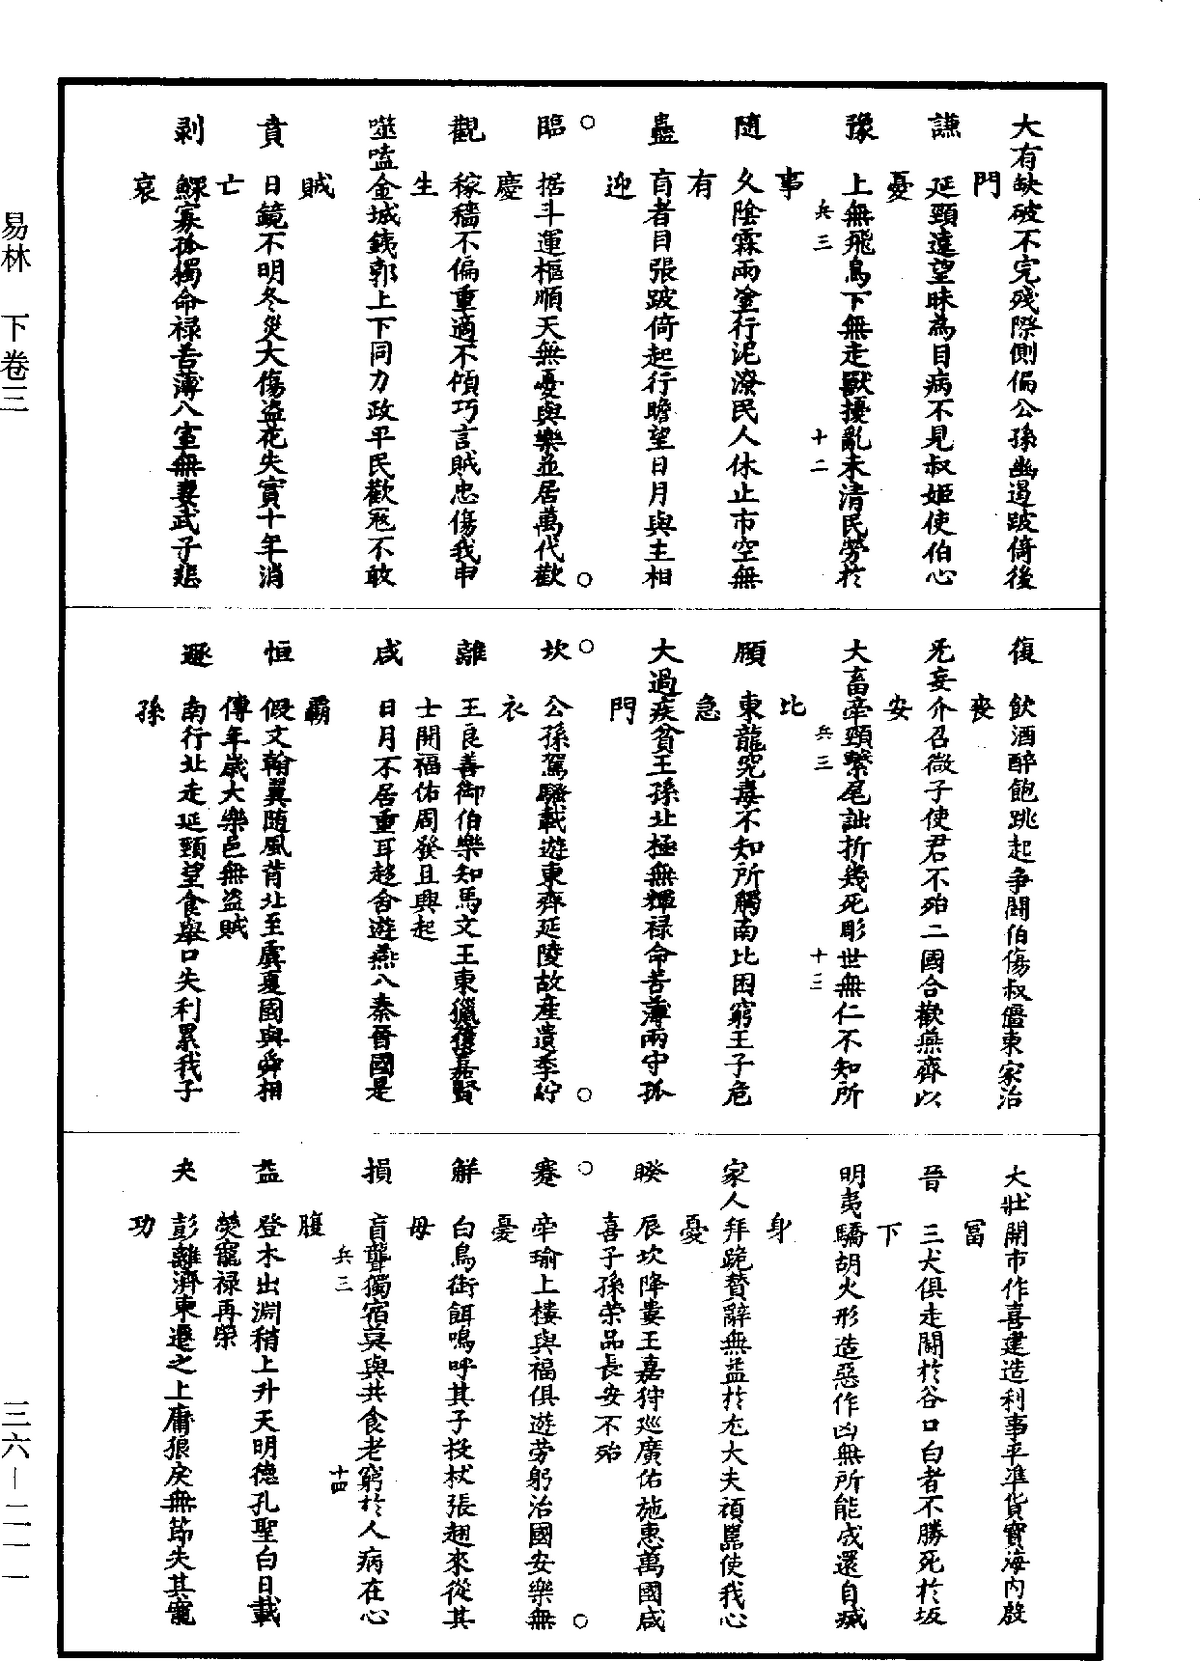 大有缺破不完殘際側偏公孫幽遏跛倚後
門
謙　延頸遠望眯為目病不見叔姬使伯心
憂
豫　上無飛鳥下無走獸擾亂未清民勞於
兵三　十二
事
隨　久陰霖雨塗行泥潦民人休止市空無
有
蠱　盲者目張跛倚起行瞻望日月與主相
迎
○　○
臨　据斗運樞順天無憂與樂並居萬代歡
慶
觀　稼穡不偏重適不傾巧言賊忠傷我申
生
噬嗑金城鐵郭上下同力政平民歡寇不敢
賊
賁　日鏡不明冬災大傷盜花失實十年消
亡
剥　鰥寡孤獨命禄苦薄入室無妻武子悲
哀
復　飲酒醉飽跳起争鬪伯傷叔僵東家治
喪
无妄介召微子使君不殆二國合歡燕齊以
安
大畜牽頸繫尾詘折幾死彫世無仁不知所
兵三　十三
比
頤　東龍究毒不知所觸南北困窮王子危
急
大過疾貧王孫北極無輝禄命苦薄兩守孤
門
○　○
坎　公孫駕驪載遊東齊延陵故產遺季紵
衣
離　王良善御伯樂知馬文王東獵獲嘉賢
士開福佑周發且興起
咸　日月不居重耳趍舍遊燕入秦晉國是
霸
恒　假文翰翼随風背北至虞夏國與舜相
傳年歲大樂邑無盜賊
遯　南行北走延頸望食舉口失利累我子
孫
大壯開市作喜建造利事平準貨寶海内殷
富
晉　三犬俱走鬪於谷口白者不勝死於坂
下
明夷驕胡火形造惡作凶無所能成還自滅
身
家人拜跪贊辭無益於尤大夫頑嚚使我心
憂
睽　辰次降婁王嘉狩巡廣佑施惠萬國咸
喜子孫荣品長安不殆
○　○
蹇　牽瑜上樓與福俱遊勞躬治國安樂無
憂
解　白鳥銜餌鳴呼其子杖杖張翅來從其
母
損　盲聾獨宿莫與共食老窮於人病在心
兵三　十四
腹
益　登木出淵稍上升天明德孔聖白日載
熒寵禄再榮
夬　彭離濟東遷之上庸狼戾無節失其寵
功
易林　下卷三
三六—二一一